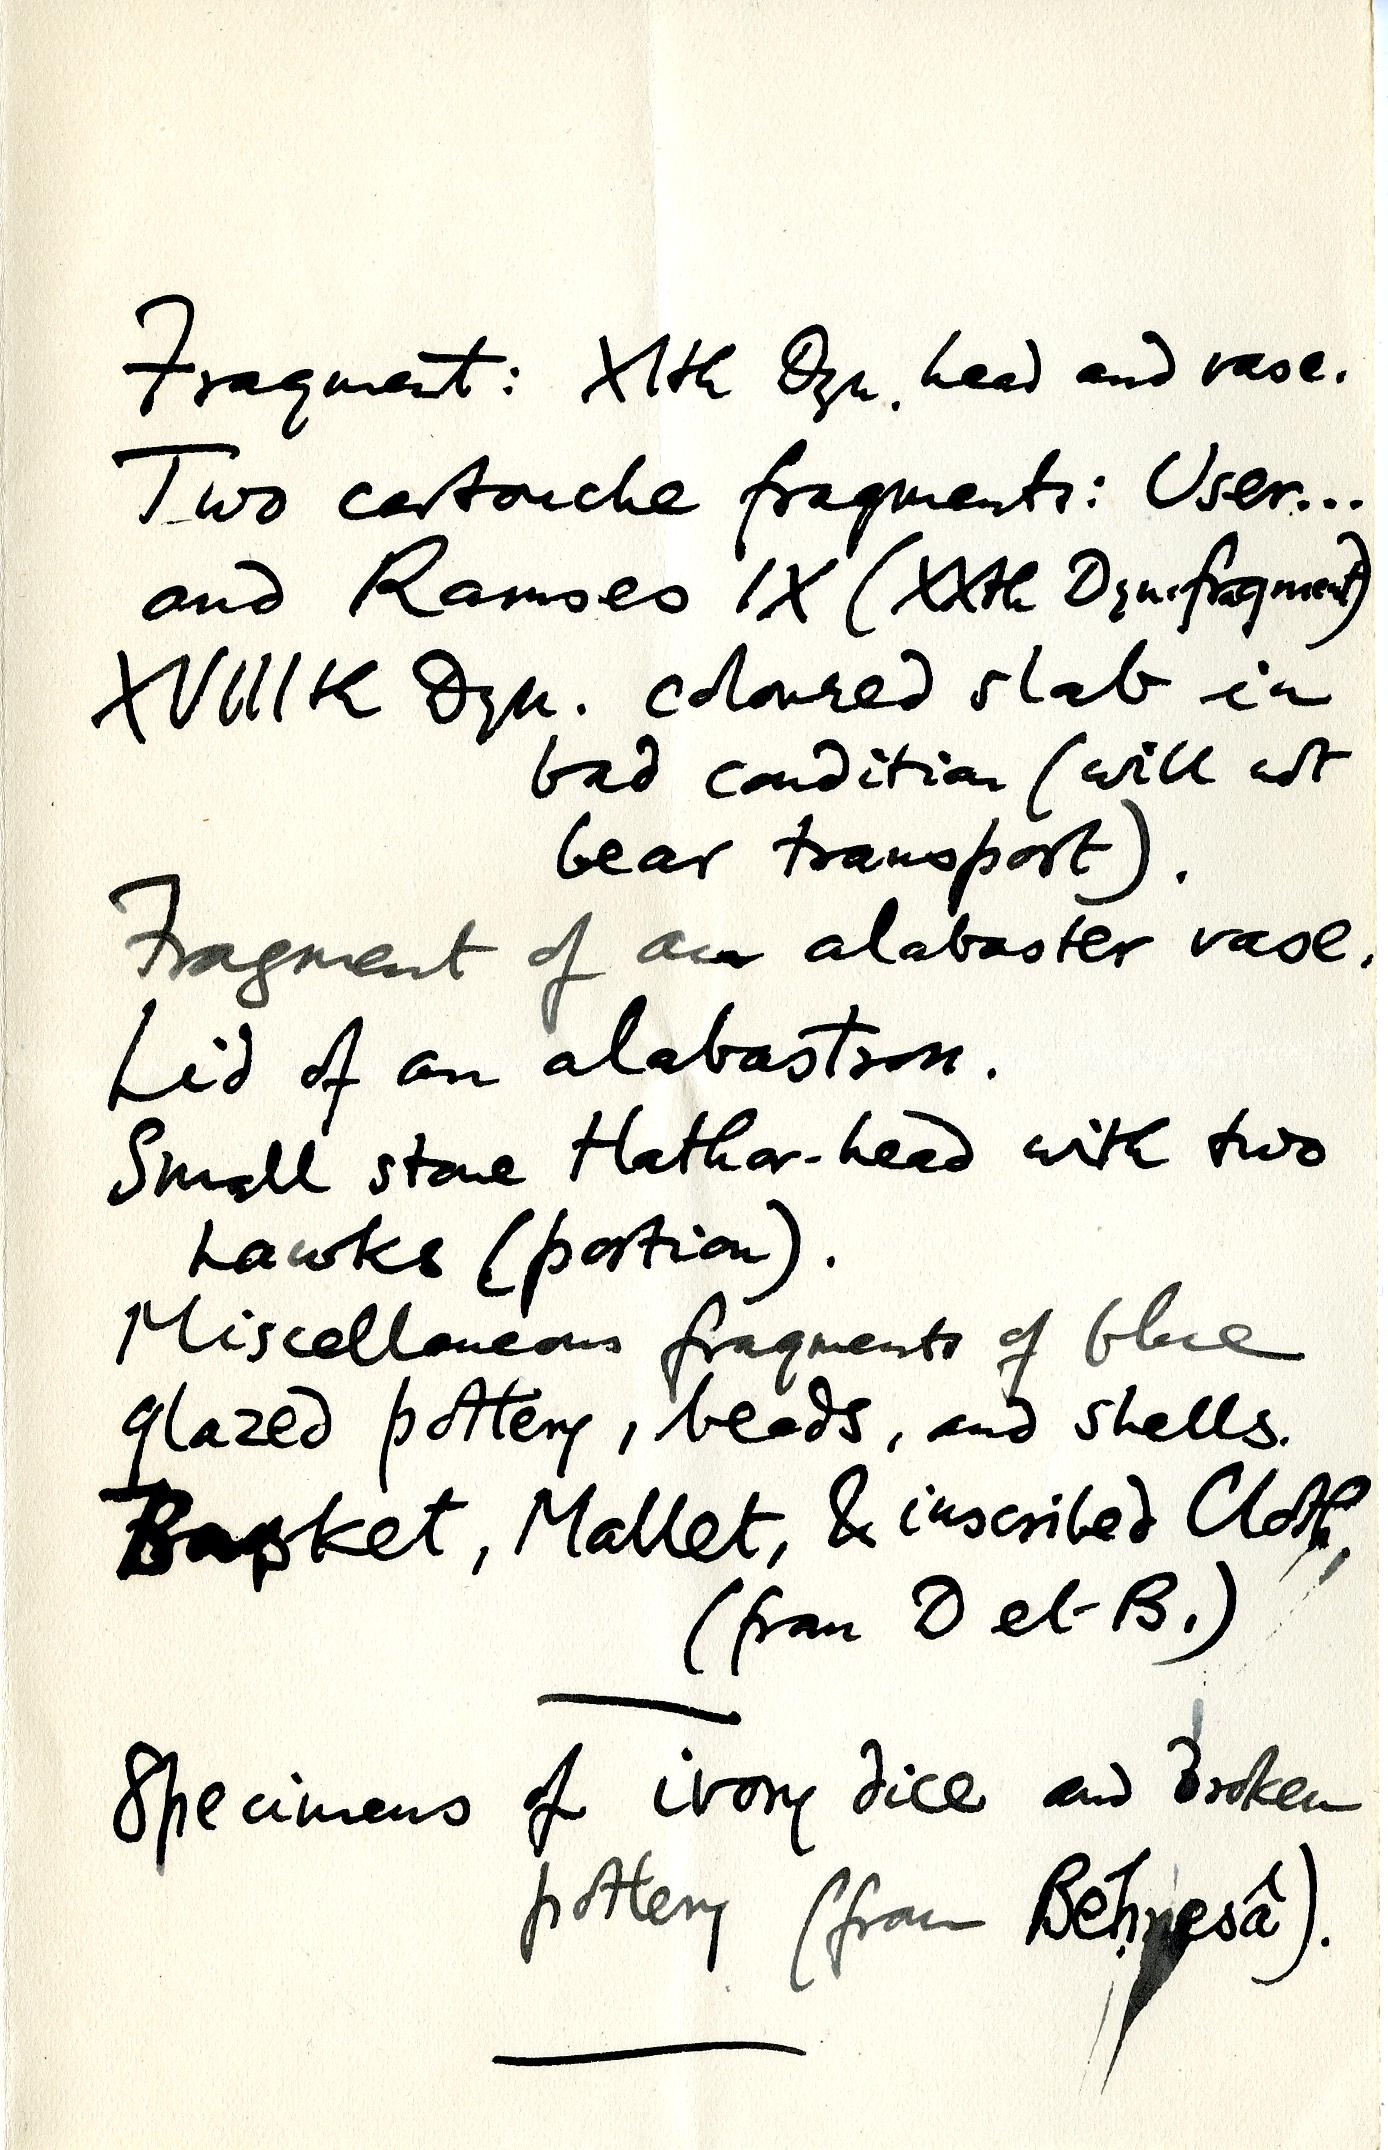 Fragment: XIth Dyn. head and vase.
Two cartouche fragments: User...
and Ramses IX (XXth Dyn. fragment)
XVIIIth Dyn. coloured slab in
bad condition (will not
bear transport).
Fragment of an alabaster vase.
Lid of an alabastron.
Small stone Hathor-head with two
hawks (portion).
Miscellaneous fragments of blue
glazed pottery, beads, and shells.
Basket, Mallet, & inscribed Cloth,
(from D el-B.)
Specimens of ivory dice and broken
pottery (from Beḥnesâ).